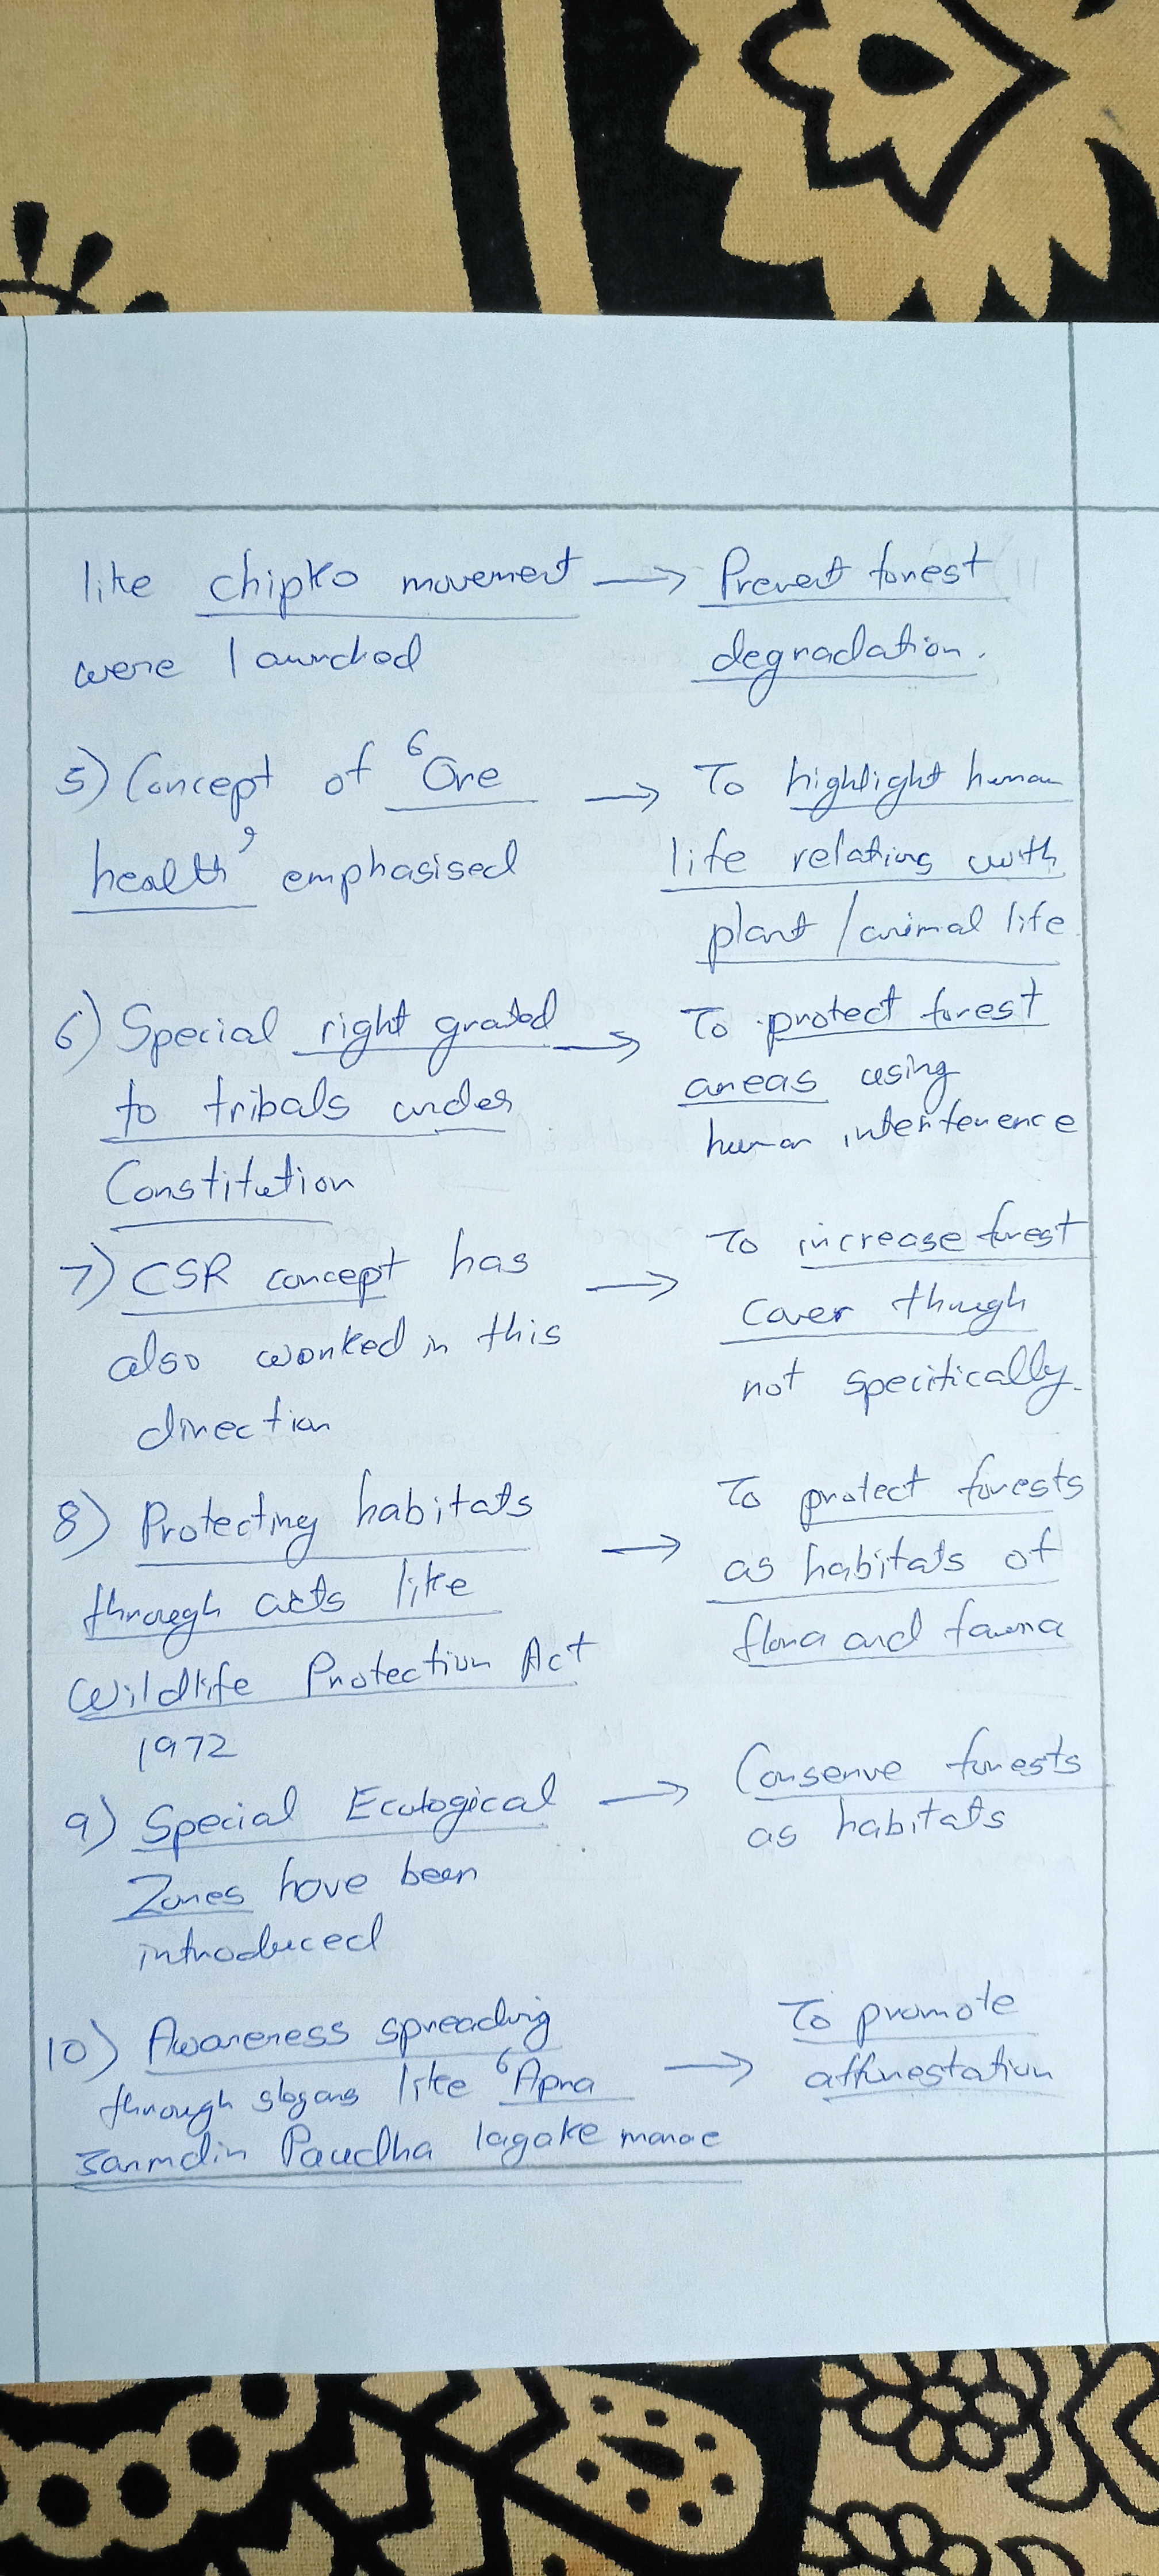 like chipko movement → Prevent forest
were launched degradation.
5) Concept of 'One → To highlight human
health' emphasised life relating with
plant / animal life.
6) Special right granted → To protect forest
to tribals under areas using
Constitution human interference
7) CSR concept has → To increase forest
also worked in this cover though
direction not specifically.
8) Protecting habitats → To protect forests
through acts like as habitats of
Wildlife Protection Act flora and fauna
1972
9) Special Ecological → Conserve forests
Zones have been as habitats
introduced
10) Awareness spreading → To promote
through slogans like 'Apna afforestation
Janmdin Paudha lagake manae